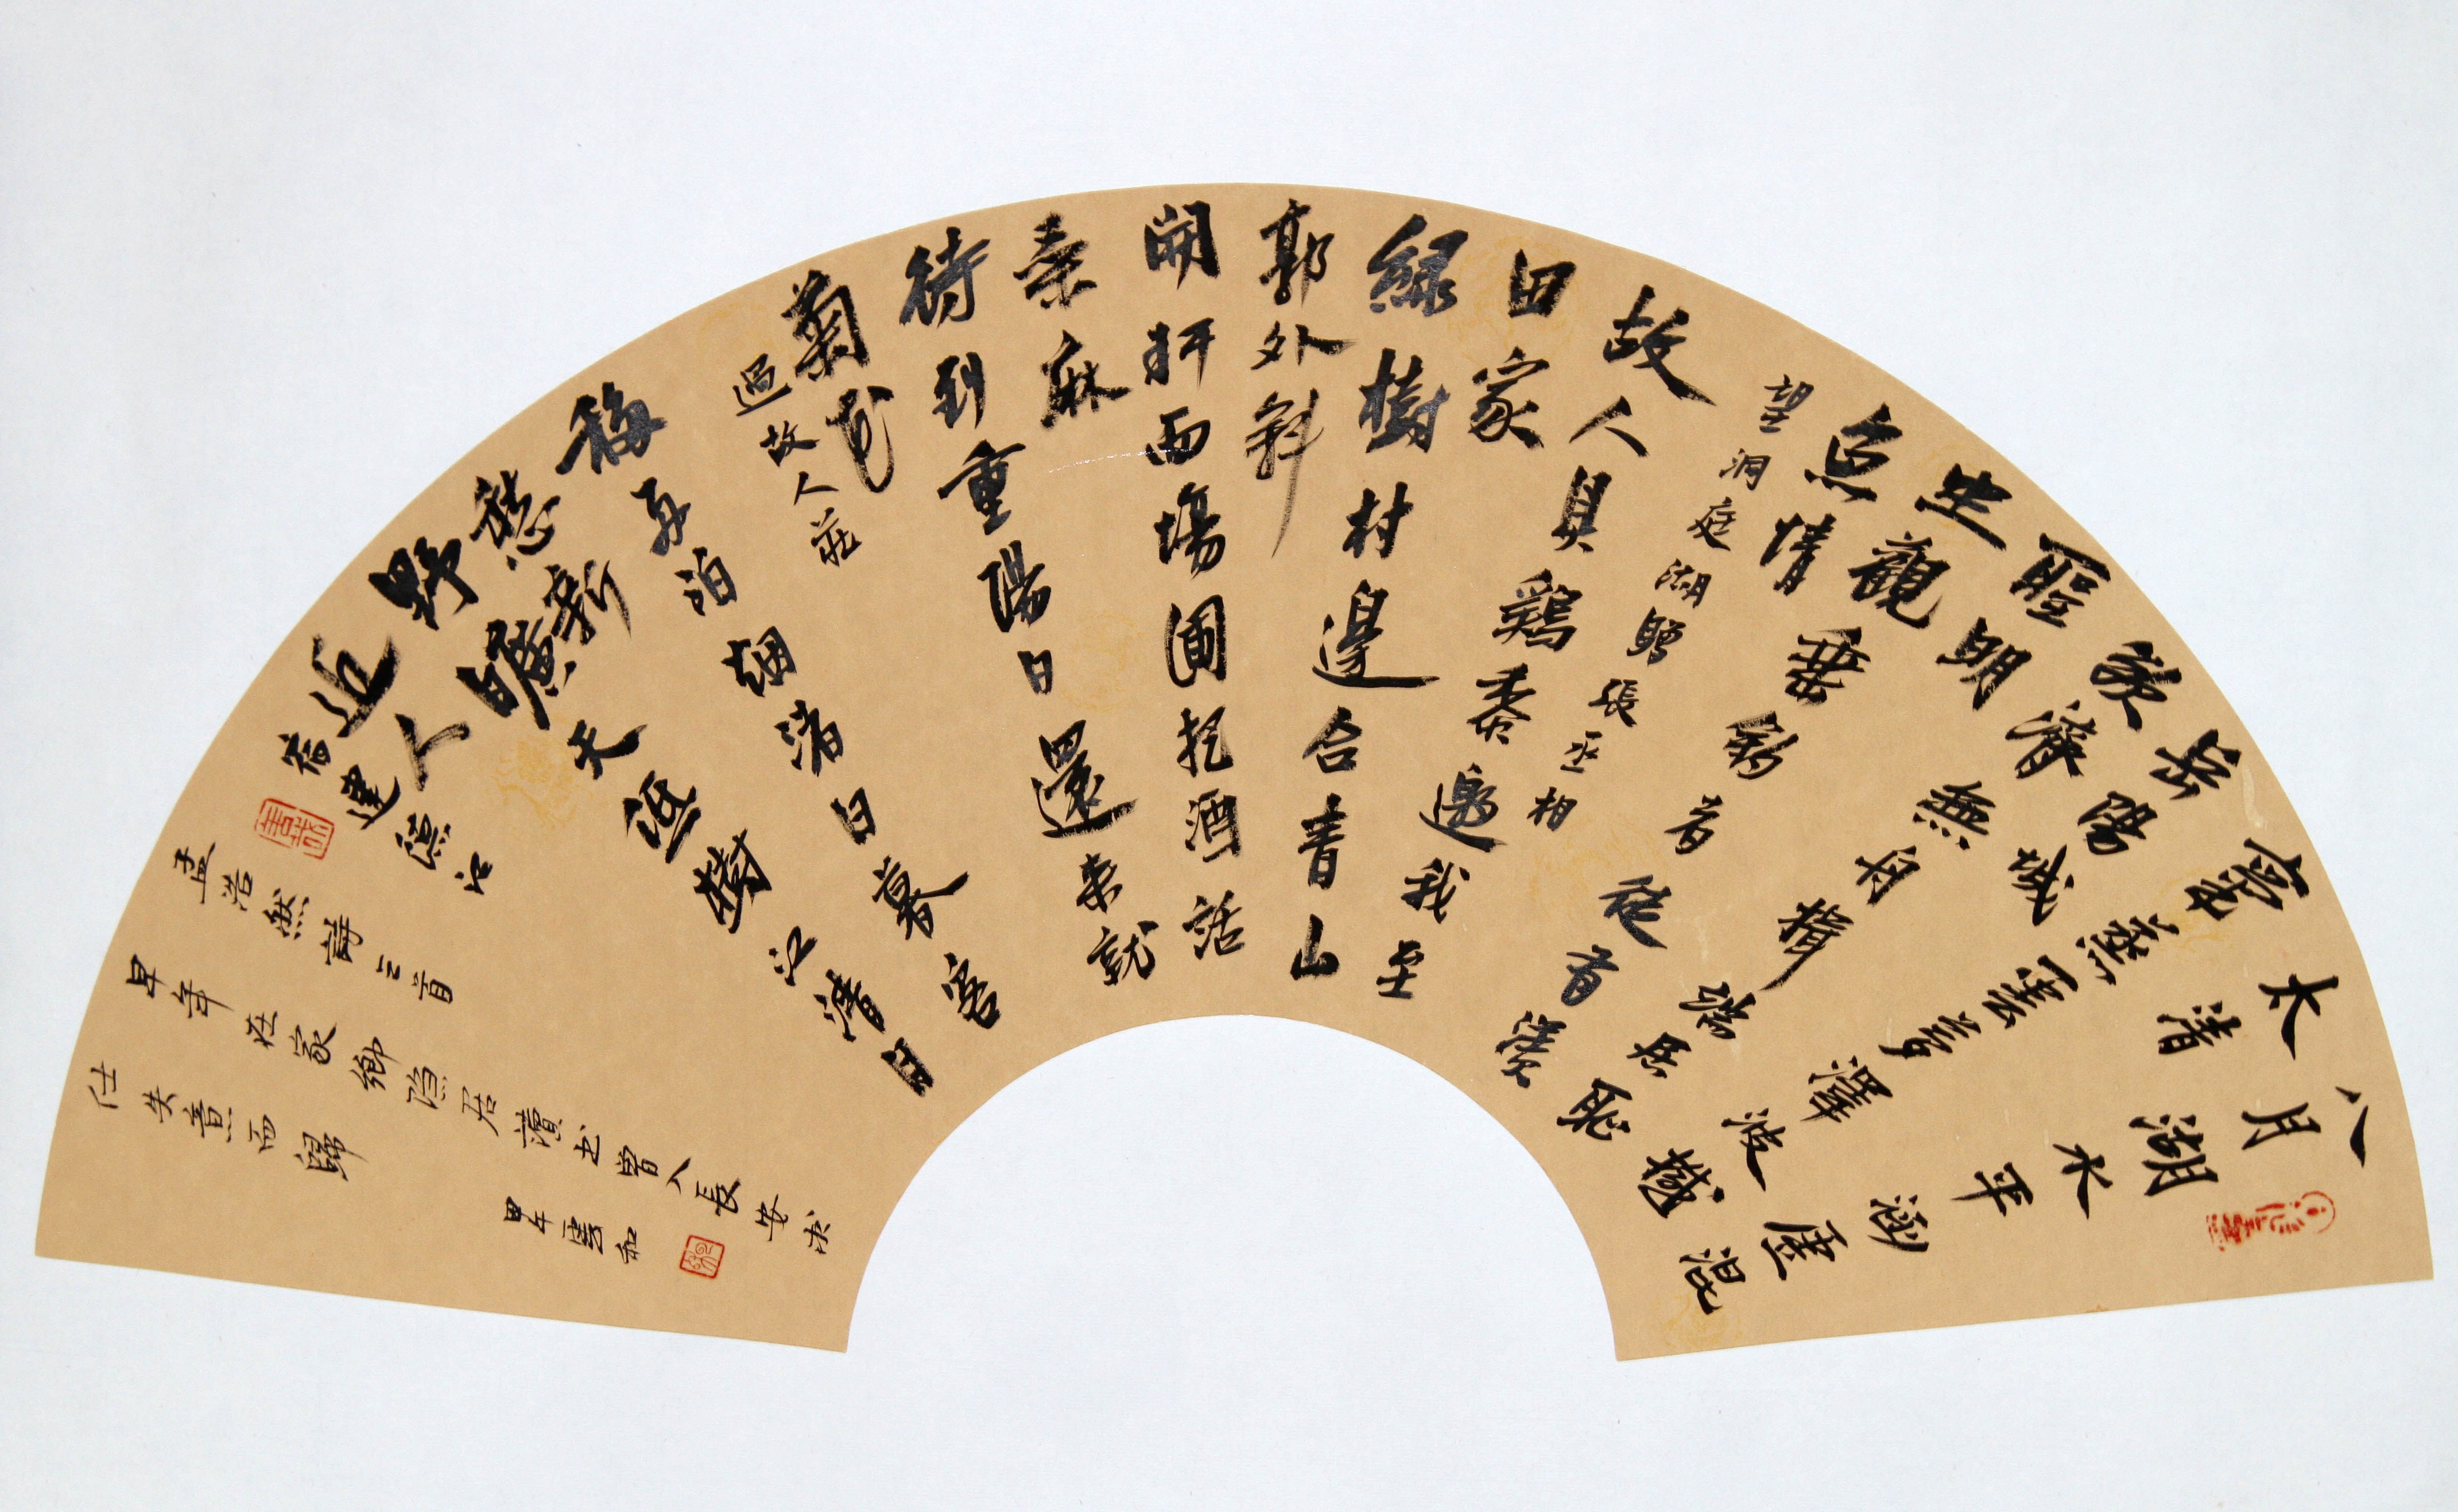 八月湖水平涵虛混
太清
氣蒸雲夢澤波撼
岳陽城
欲濟無舟楫端居恥
聖明
坐觀垂釣者徒有羨
魚情
望洞庭湖贈張丞相
故人具鷄黍邀我至
田家
綠樹村邊合青山
郭外斜
開軒面場圃把酒話
桑麻
待到重陽日還来就
菊花
過故人莊
移舟泊烟渚日暮客
愁新
野曠天低樹江清月
近人
宿建德江
孟浩然詩三首
早年在家鄉隐居讀书曾入長安求
仕失意而歸
甲午雲和